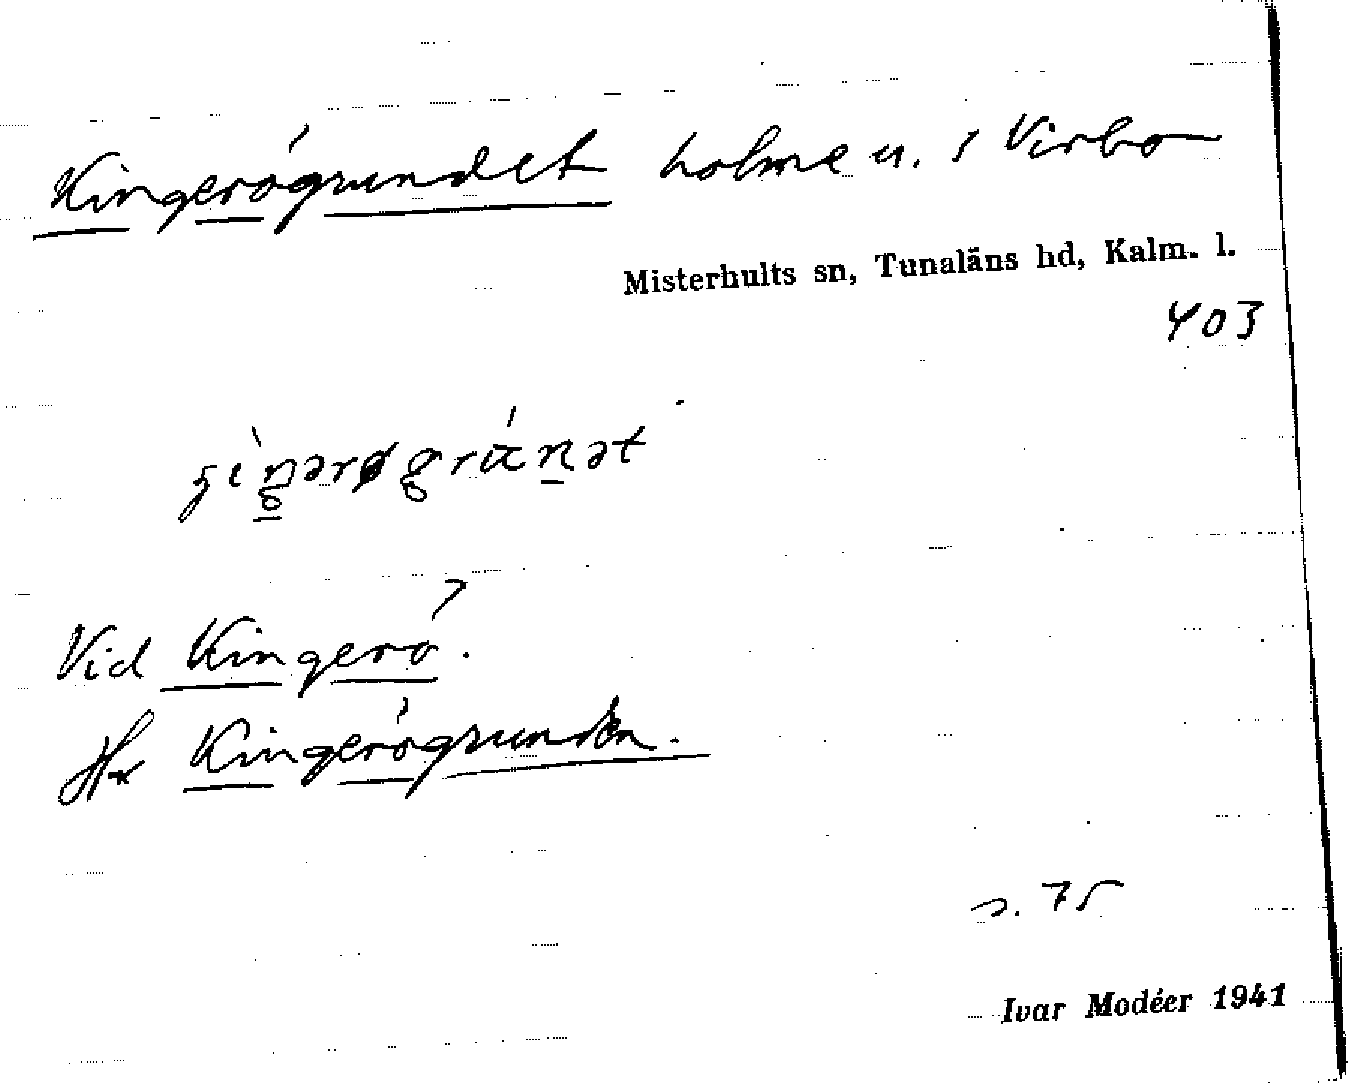 Kingerögrundet holme u. / Virbo
Misterhults sn, Tunaläns hd, Kalm. l.
403
Vid Kingerö.
Hr Kingerögrunden.
s. 75
Ivar Modéer 1941